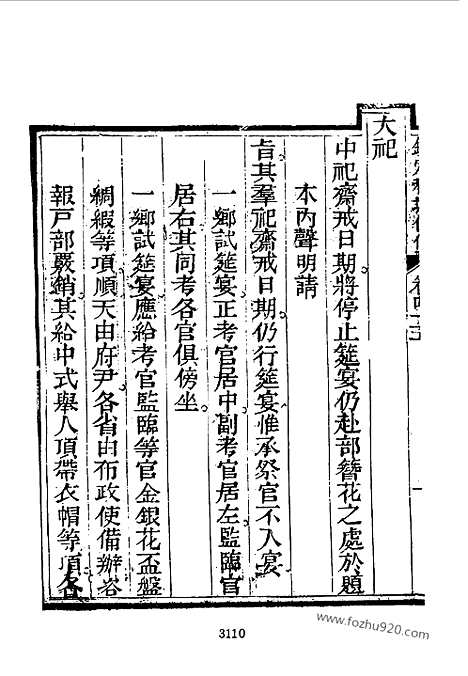 欽定科場條例 卷四十三
大祀
中祀齋戒日期將停止筵宴仍赴部簪花之處於題
本內聲明請
旨其羣祀齋戒日期仍行筵宴惟承祭官不入宴
一鄉試筵宴正考官居中副考官居左監臨官
居右其同考各官俱傍坐
一鄉試筵宴應給考官監臨等官金銀花盃盤
綢緞等項順天由府尹各省由布政使備辦咨
報戸部覈銷其給中式舉人頂帶衣帽等項各
一
3110
www.fozhu920.com